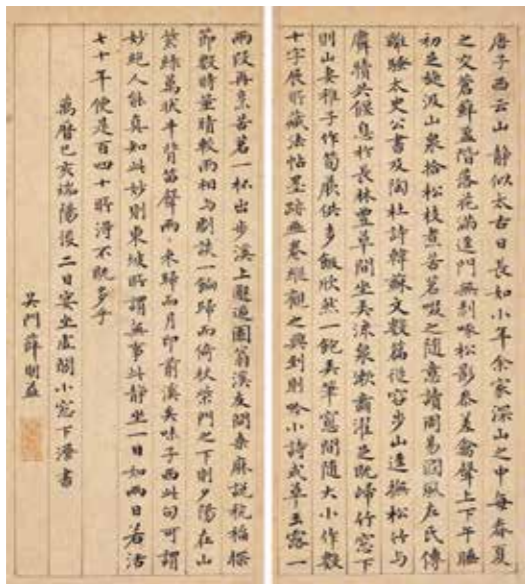 唐子西云山靜似太古日長如小年余家深山之中每春夏
之交蒼蘚盈階落花滿逕門無剝啄松影參差禽聲上下午睡
初足旋汲山泉拾松枝煮苦茗啜之隨意讀周易國風左氏傳
離騷太史公書及陶杜詩韓蘇文數篇從容步山逕撫松竹與
麛犢共偃息於長林豐草間坐弄流泉漱齒濯足既歸竹窓下
則山妻稚子作筍蕨供麥飯欣然一飽弄筆窓間隨大小作數
十字展所藏法帖墨跡畫卷縱觀之興到則吟小詩或草玉露一
兩段再烹苦茗一杯出步溪上邂逅園翁溪友問桑麻說秔稻探
節數時量晴較雨相與劇談一餉歸而倚杖柴門之下則夕陽在山
紫綠萬狀牛背笛聲兩〻來歸而月印前溪矣味子西此句可謂
妙絕人能真知此妙則東坡所謂無事此靜坐一日如兩日若活
七十年便是百四十所得不既多乎
萬曆己亥端陽後二日宴坐虛閣小窓下漫書
吳門薛明益